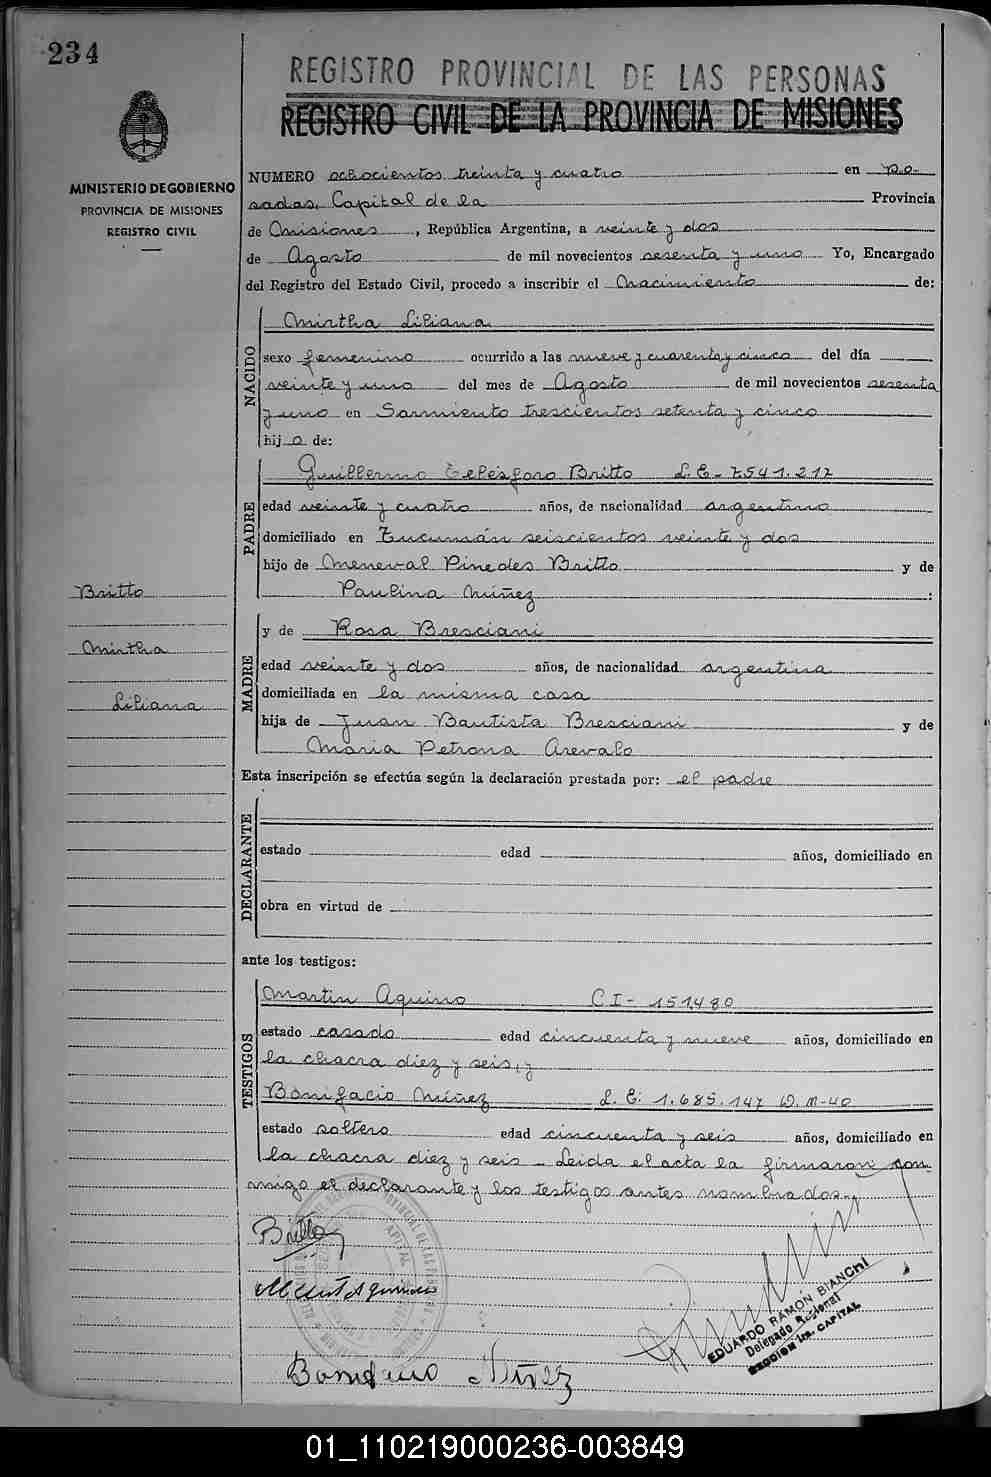 234
REGISTRO PROVINCIAL DE LAS PERSONAS
REGISTRO CIVIL DE LA PROVINCIA DE MISIONES
MINISTERIO DE GOBIERNO
PROVINCIA DE MISIONES
REGISTRO CIVIL
NUMERO ochocientos treinta y cuatro en Po-
sadas, Capital de la Provincia
de Misiones, República Argentina, a veinte y dos
de Agosto de mil novecientos sesenta y uno Yo, Encargado
del Registro del Estado Civil, procedo a inscribir el Nacimiento de:
NACIDO
Mirtha Liliana
sexo femenino ocurrido a las nueve y cuarenta y cinco del día
veinte y uno del mes de Agosto de mil novecientos sesenta
y uno en Sarmiento trescientos setenta y cinco
hij a de:
PADRE
Guillermo Telésforo Britto L.E- 7541.217
edad veinte y cuatro años, de nacionalidad argentino
domiciliado en Tucumán seiscientos veinte y dos
hijo de Meneval Pinedes Britto y de
Paulina Núñez :
Britto
Mirtha
Liliana
MADRE
y de Rosa Bresciani
edad veinte y dos años, de nacionalidad argentina
domiciliada en la misma casa
hija de Juan Bautista Bresciani y de
Maria Petrona Arevalo
Esta inscripción se efectúa según la declaración prestada por: el padre
DECLARANTE
estado edad años, domiciliado en
obra en virtud de
ante los testigos:
TESTIGOS
Martin Aquino C I- 151.480
estado casado edad cincuenta y nueve años, domiciliado en
la chacra diez y seis, y
Bonifacio Núñez L. E: 1.685.147 D.M-40
estado soltero edad cincuenta y seis años, domiciliado en
la chacra diez y seis - Leida el acta la firmaron con-
migo el declarante y los testigos antes nombrados.
Britto
Aquino
EDUARDO RAMON BIANCHI
Delegado Regional
SECCION 1ra. CAPITAL
Bonifacio Núñez
01_110219000236-003849